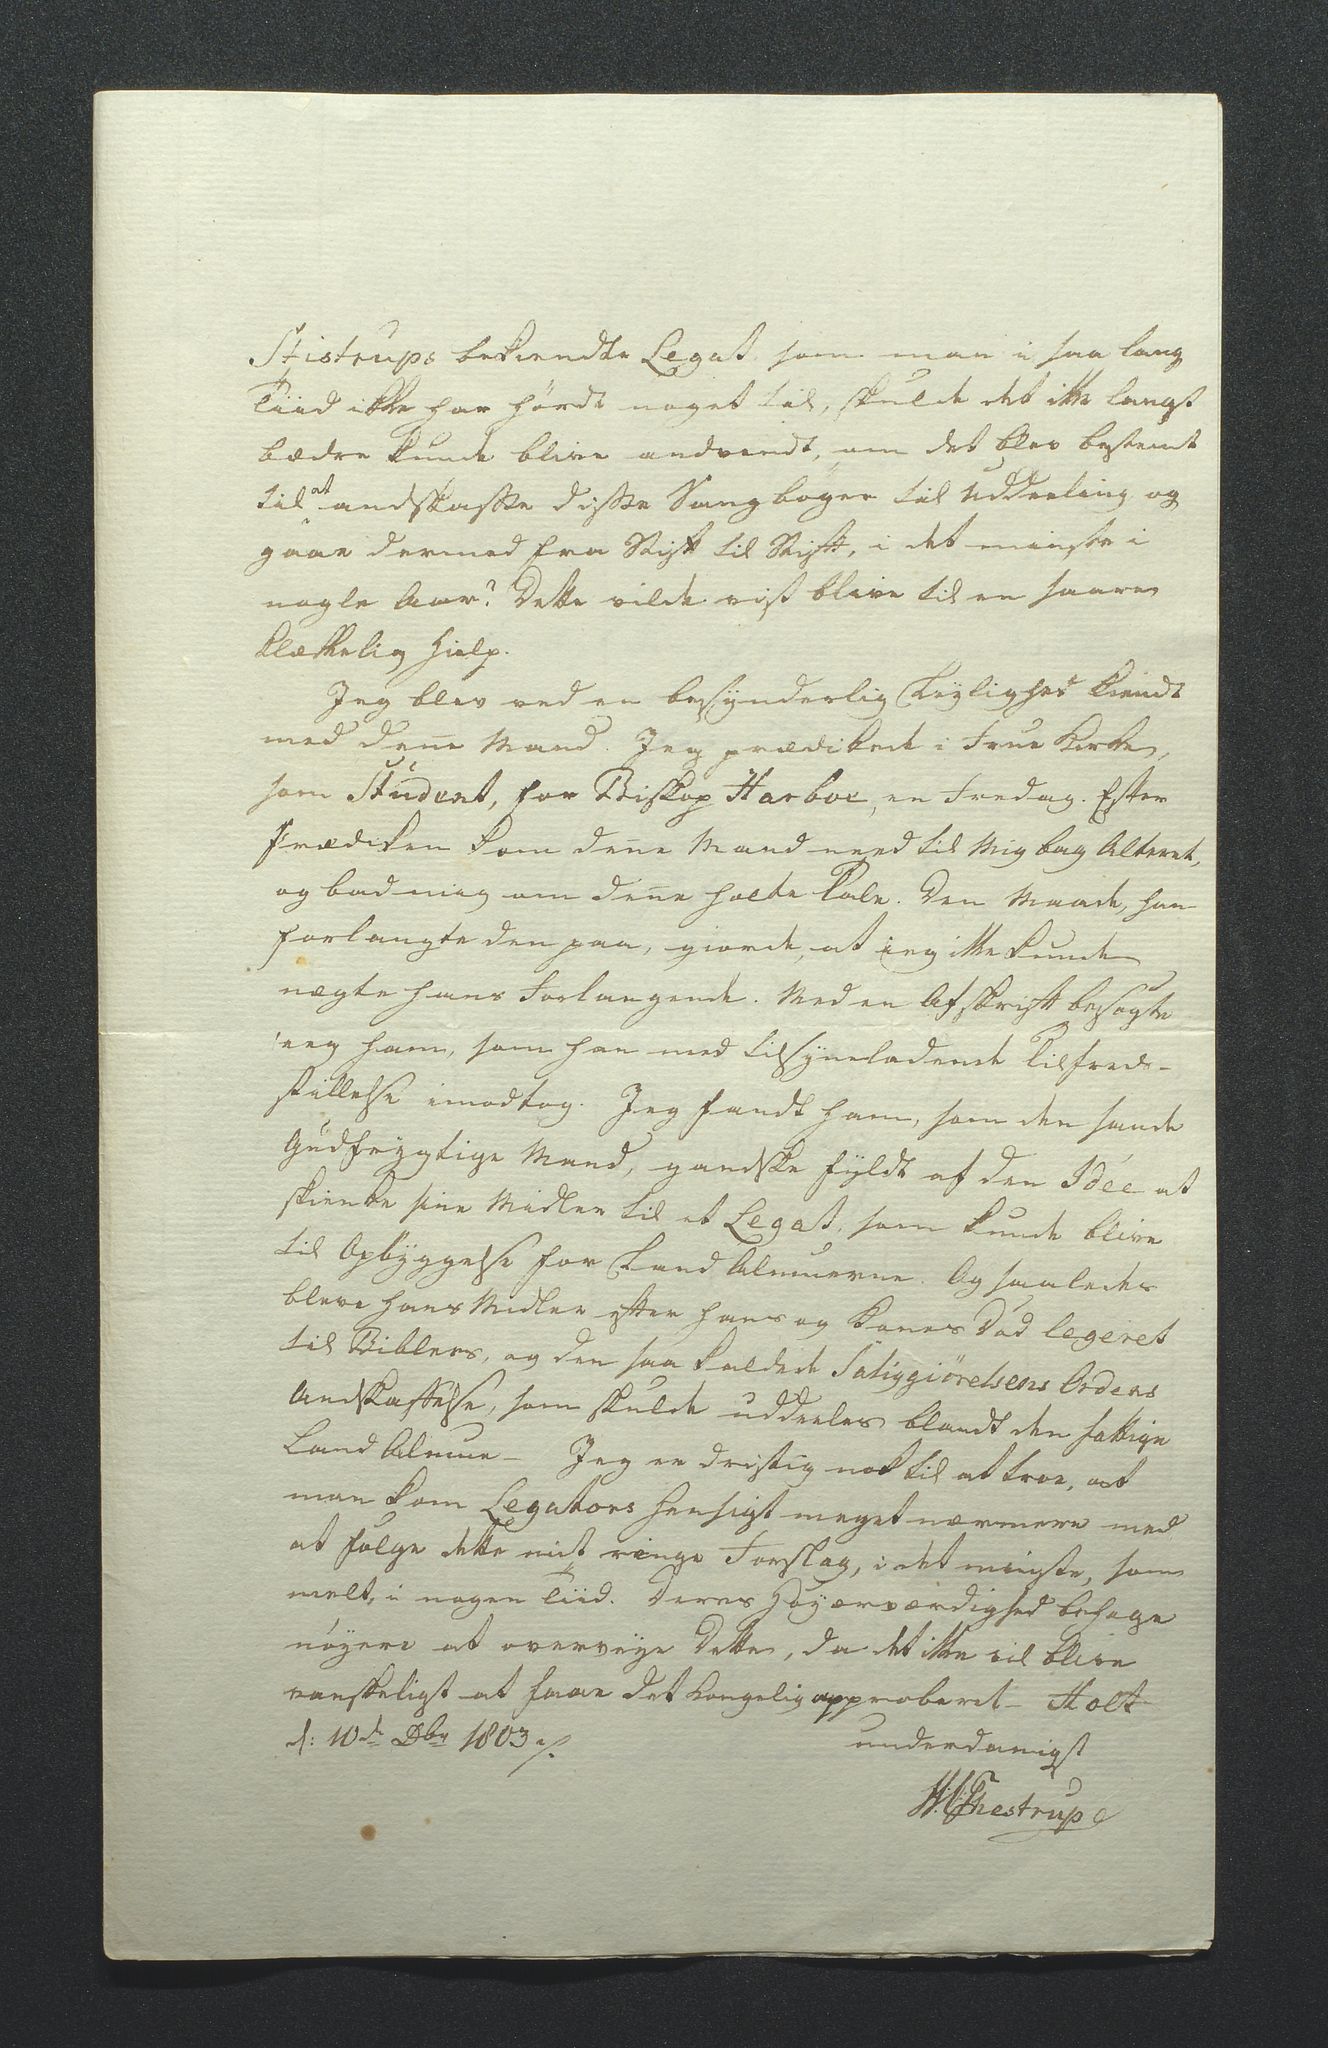 Stistrups bekiendte Legat som man i saa lang
Tiid ikke har hørdt noget til, skulde det ikke langt
bædre kunde blive andvendt, om det blev bestemt
til at andskaffe disse Sangbøger til Uddeeling og
gaae dermed fra Stift til Stift, i det minste i
nogle Aar? Dette vilde vist blive til en saare
klækkelig Hielp.
Jeg blev ved en besÿnderlig Leÿlighed kiendt
med denne Mand. Jeg prædikede i Frue Kirke,
som Student, for Biskop Harboe, en Fredag. Efter
Prædiken kom denne Mand need til Mig bag Alteret,
og bad mig om denne holdte Tale. Den Maade, han
forlangte den paa, giorde, at ieg ikke kunde
nægte hans Forlangende. Med en Afskrift besøgte
ieg ham, som han med tilsÿneladende Tilfreds-
stillelse imodtog. Jeg fandt ham, som den sande
Gudfrÿgtige Mand, gandske fÿldt af den Idée at
skienke sine Midler til et Legat, som kunde blive
til Opbÿggelse for Land Almuerne. Og saaledes
bleve hans Midler efter hans og Kones Død legeret
til Biblers, og den saa kaldede Saliggiörelsens Ordens
Andskaffelse, som skulde uddeeles blandt den fattige
Land Almue - Jeg er dristig nok til at troe, at
man kom Legators Hensigt meget nærmere med
at følge dette mit ringe Forslag, i det mindste, som
melt, i nogen Tiid. Deres Høÿærværdighed behage
nøÿere at overveÿe Dette, da det ikke vil blive
vanskeligt at faae det kongelig approberet - Holt
d: 10de Dbr 1803 ./.
underdanigst
Thestrup